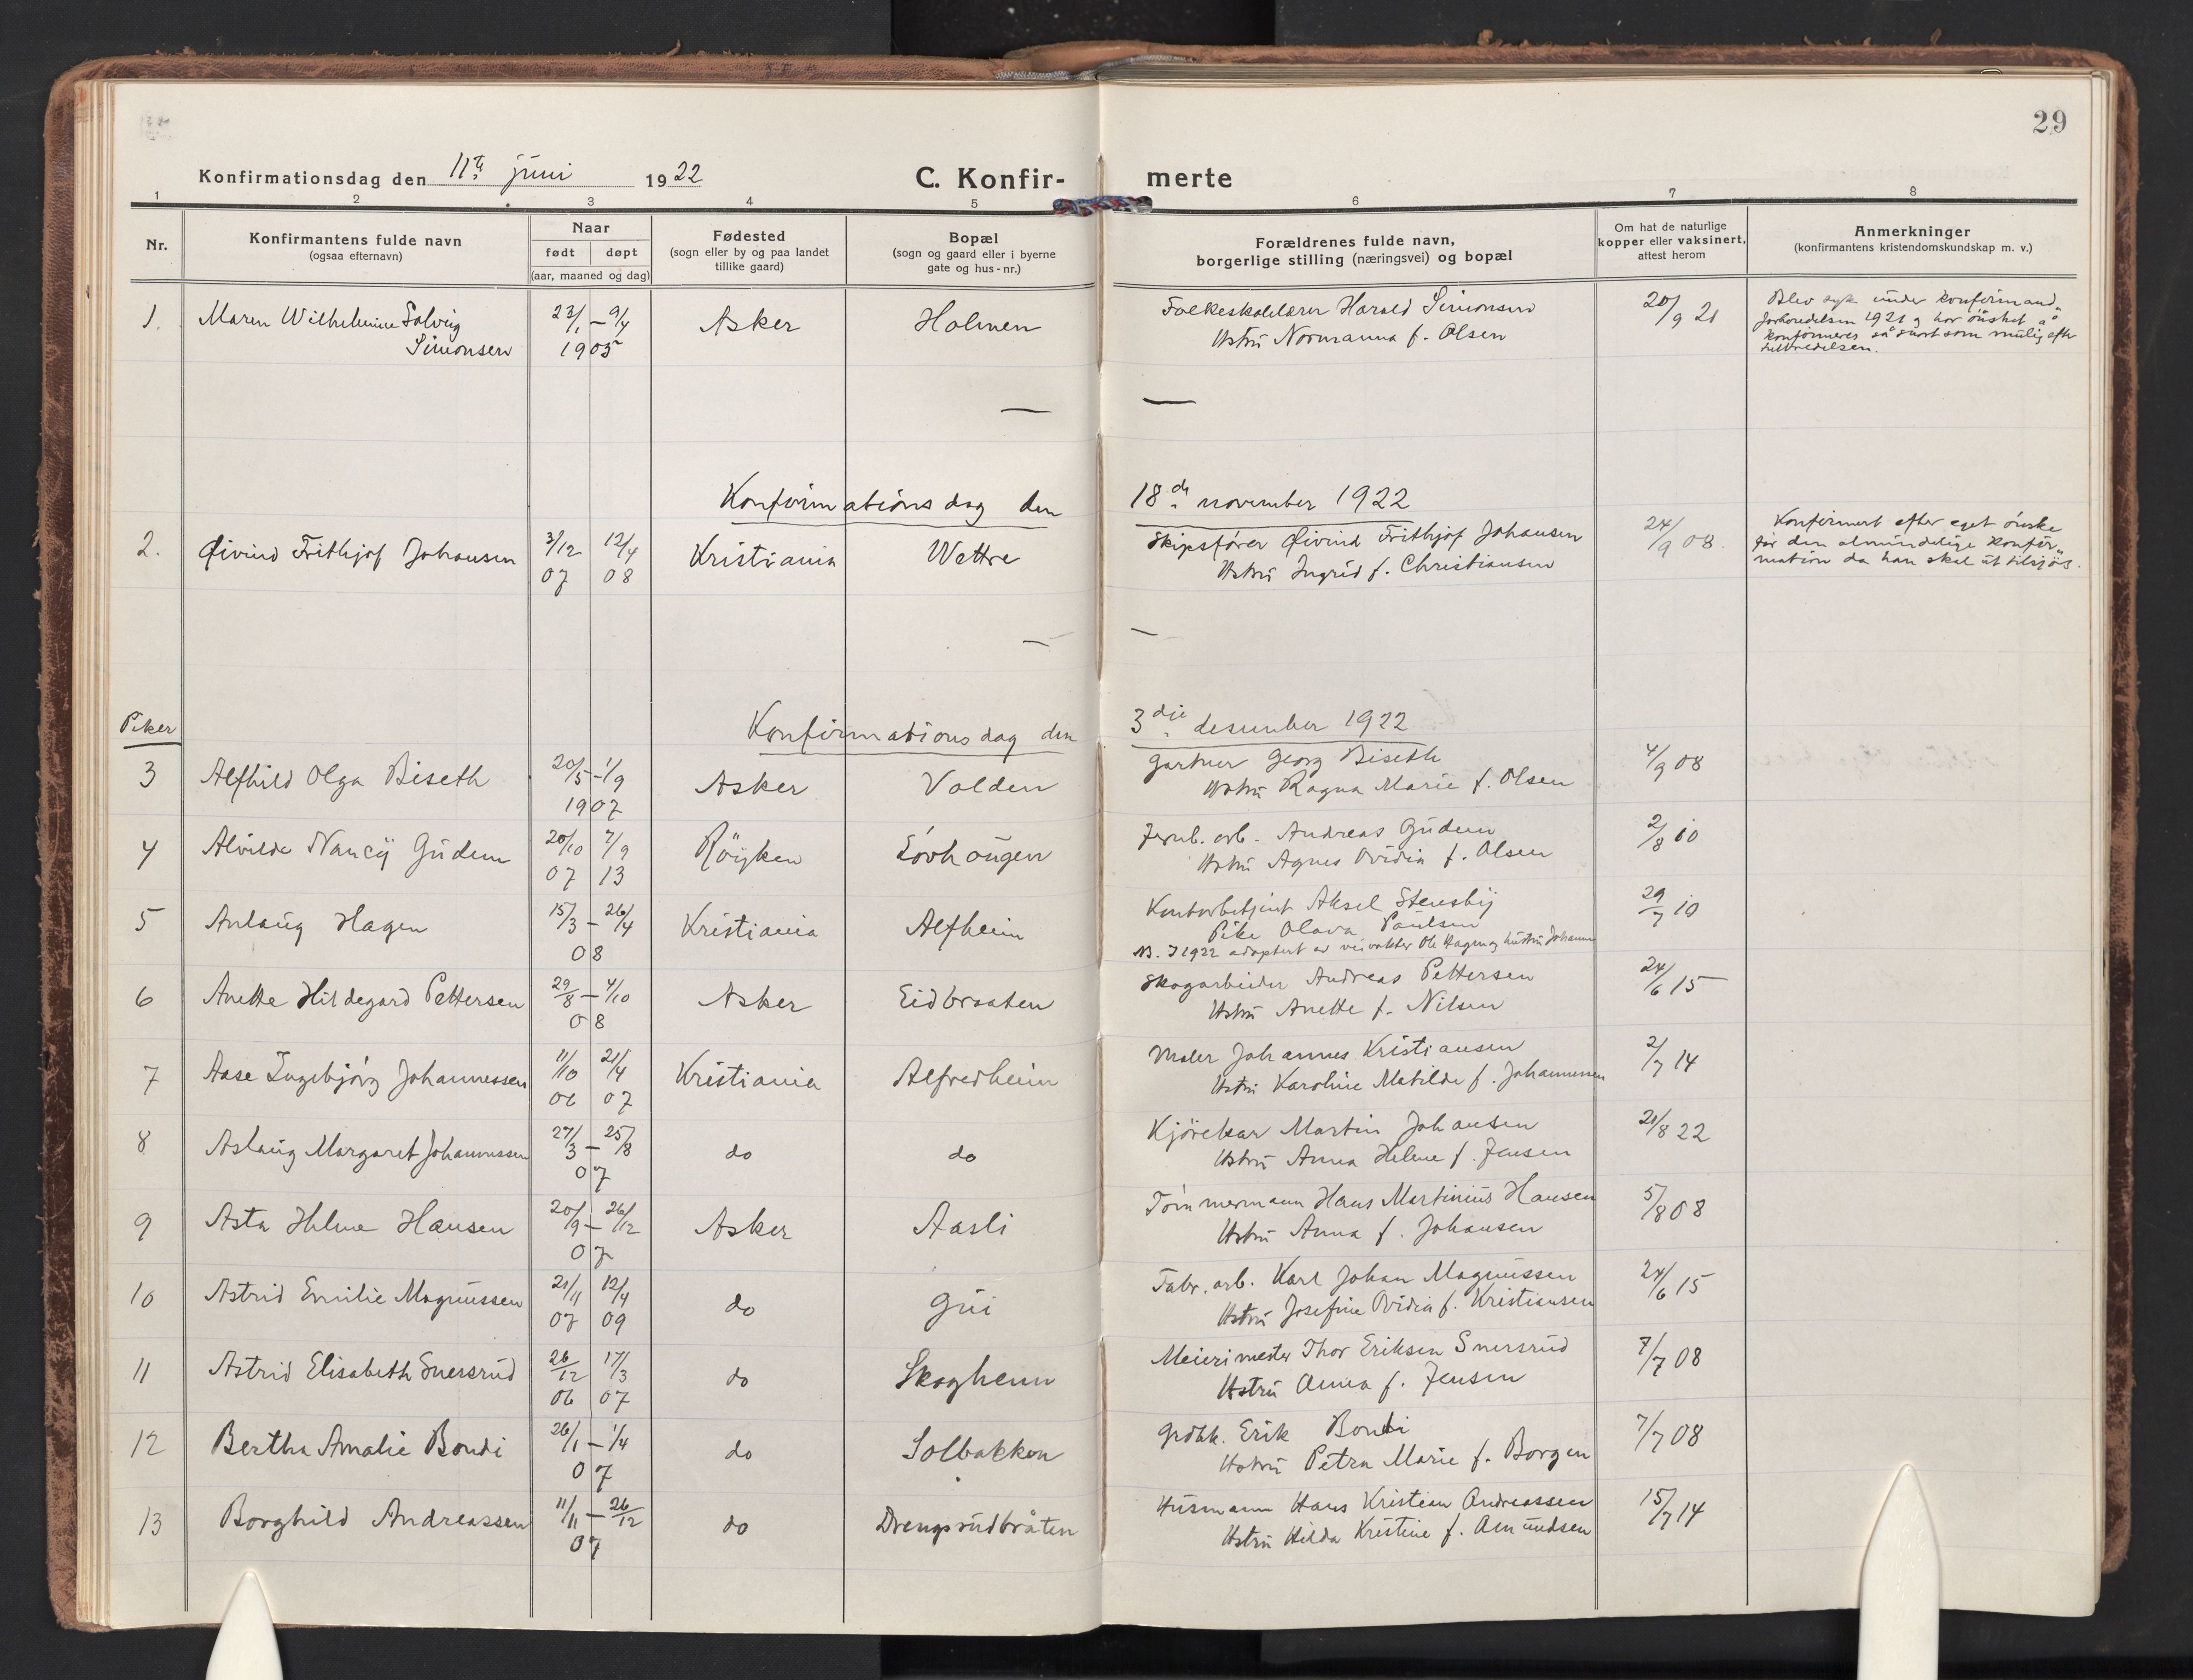 29
Konfirmationsdag den 11te juni 1922
C. Konfirmerte
1 2 3 4 5 6 7 8
Nr.
Konfirmantens fulde navn
(ogsaa efternavn)
Naar
født døpt
(aar, maaned og dag)
Fødested
(sogn eller by og paa landet
tillike gaard)
Bopæl
(sogn og gaard eller i byerne
gate og hus-nr.)
Forældrenes fulde navn,
borgerlige stilling (næringsvei) og bopæl
Om hat de naturlige
kopper eller vaksinert,
attest herom
Anmerkninger
(konfirmantens kristendomskundskap m. v.)
1. Maren Wilhelmine Solveig 23/1 – 9/4 Asker Holmen Folkeskolelærer Harald Simonsen 20/9 21 Blev syk under konfirmand-
Simonsen 1905 Hstru Normanna f. Olsen forberedelsen 1921 og har ønsket å
konfirmeres så snart som mulig efter
helbredelsen.
Konfirmationsdag den 18de november 1922
2. Øivind Frithjof Johansen 3/12 12/4 Kristiania Wettre Skipsfører Øivind Frithjof Johansen 24/9 08. Konfirmert efter eget ønske
07 08 Hstru Ingrid f. Christiansen før den almindelige konfir-
mation da han skal ut tilsjös.
Piker Konfirmationsdag den 3dje desember 1922
3 Alfhild Olga Biseth 20/5 – 1/9 Asker Volden Gartner Georg Biseth 4/9 08
1907 Hstru Ragna Marie f. Olsen
4 Alvilde Nancy Gudem 20/10 7/9 Röyken Lövhaugen Jernb. arb. Andreas Gudem 2/8 10
07 13 Hstru Agnes Ovidia f. Olsen
5 Anlaug Hagen 15/3 – 26/4 Kristiania Alfheim Kontorbetjent Aksel Stensby 29/7 10
08 Pike Olava Paulsen
NB. I 1922 adoptert av veivokter Ole Hagen og hustru Johanne
6 Anette Hildegard Pettersen 29/8 – 4/10 Asker Eidbraaten Skogarbeider Andreas Pettersen 24/6 15
08 Hstru Anette f. Nilsen
7 Aase Ingebjörg Johannessen 11/10 21/4 Kristiania Alfredheim Maler Johannes Kristiansen 2/7 14
06 07 Hstru Karoline Matilde f. Johannessen
8 Aslaug Margaret Johannessen 27/3 – 25/8 do do Kjörekar Martin Johansen 21/8 22
07 Hstru Anna Helene f. Jensen
9 Asta Helene Hansen 20/9 – 26/12 Asker Aasli Tömmermann Hans Martinius Hansen 5/8 08
07 Hstru Anna f. Johansen
10 Astrid Emilie Magnussen 21/11 12/4 do Gui Fabr. arb. Karl Johan Magnussen 24/6 15
07 09 Hstru Josefine Ovidia f. Kristiansen
11 Astrid Elisabeth Snersrud 26/12 17/3 do Skogheim Meierimester Thor Eriksen Snersrud 7/7 08
06 07 Hstru Anna f. Jensen
12 Bertha Amalie Bondi 26/1 – 1/4 do Solbakken Grdbk. Erik Bondi 7/7 08
07 Hstru Petra Marie f. Borgen
13 Borghild Andreassen 11/11 – 26/12 do Drengsrudbråten Husmann Hans Kristian Andreassen 15/7 14
07 Hstru Hilda Kristine f. Amundsen